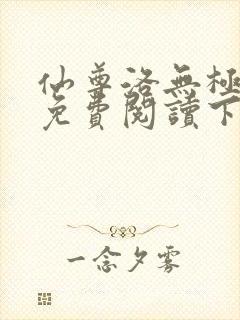 仙尊洛無極
免費閱讀下
一念夕霧